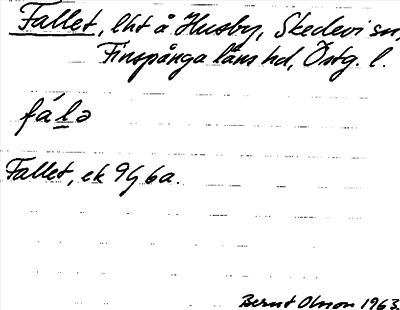 Fallet, lht å Husby, Skedevi sn,
Finspånga läns hd, Östg. l.
fá̱lə
Fallet, ek 9G 6a.
Bernt Olsson 1963.